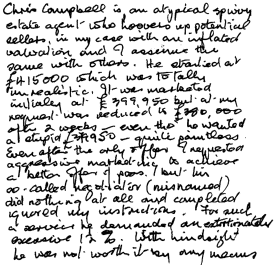 Chris Campbell is an atypical spivvy
estate agent who hoovers up potential
sellers, in my case with an inflated
valuation and I assume the
same with others. He started at
£415000 which was totally
unrealistic. It was marketed
initially at £399,950 but at my
request was reduced to £380,000
after 2 weeks - even then he wanted
a stupid 379950 - quite pointless.
Even after the only offer I requested
aggressive marketing to achieve
a better offer if poss. but his
so-called negotiator (misnamed)
did nothing at all and completely
ignored my instructions. For such
a service he demanded an extortionately
excessive 1 2 %. With hindsight
he was not worth it by any means